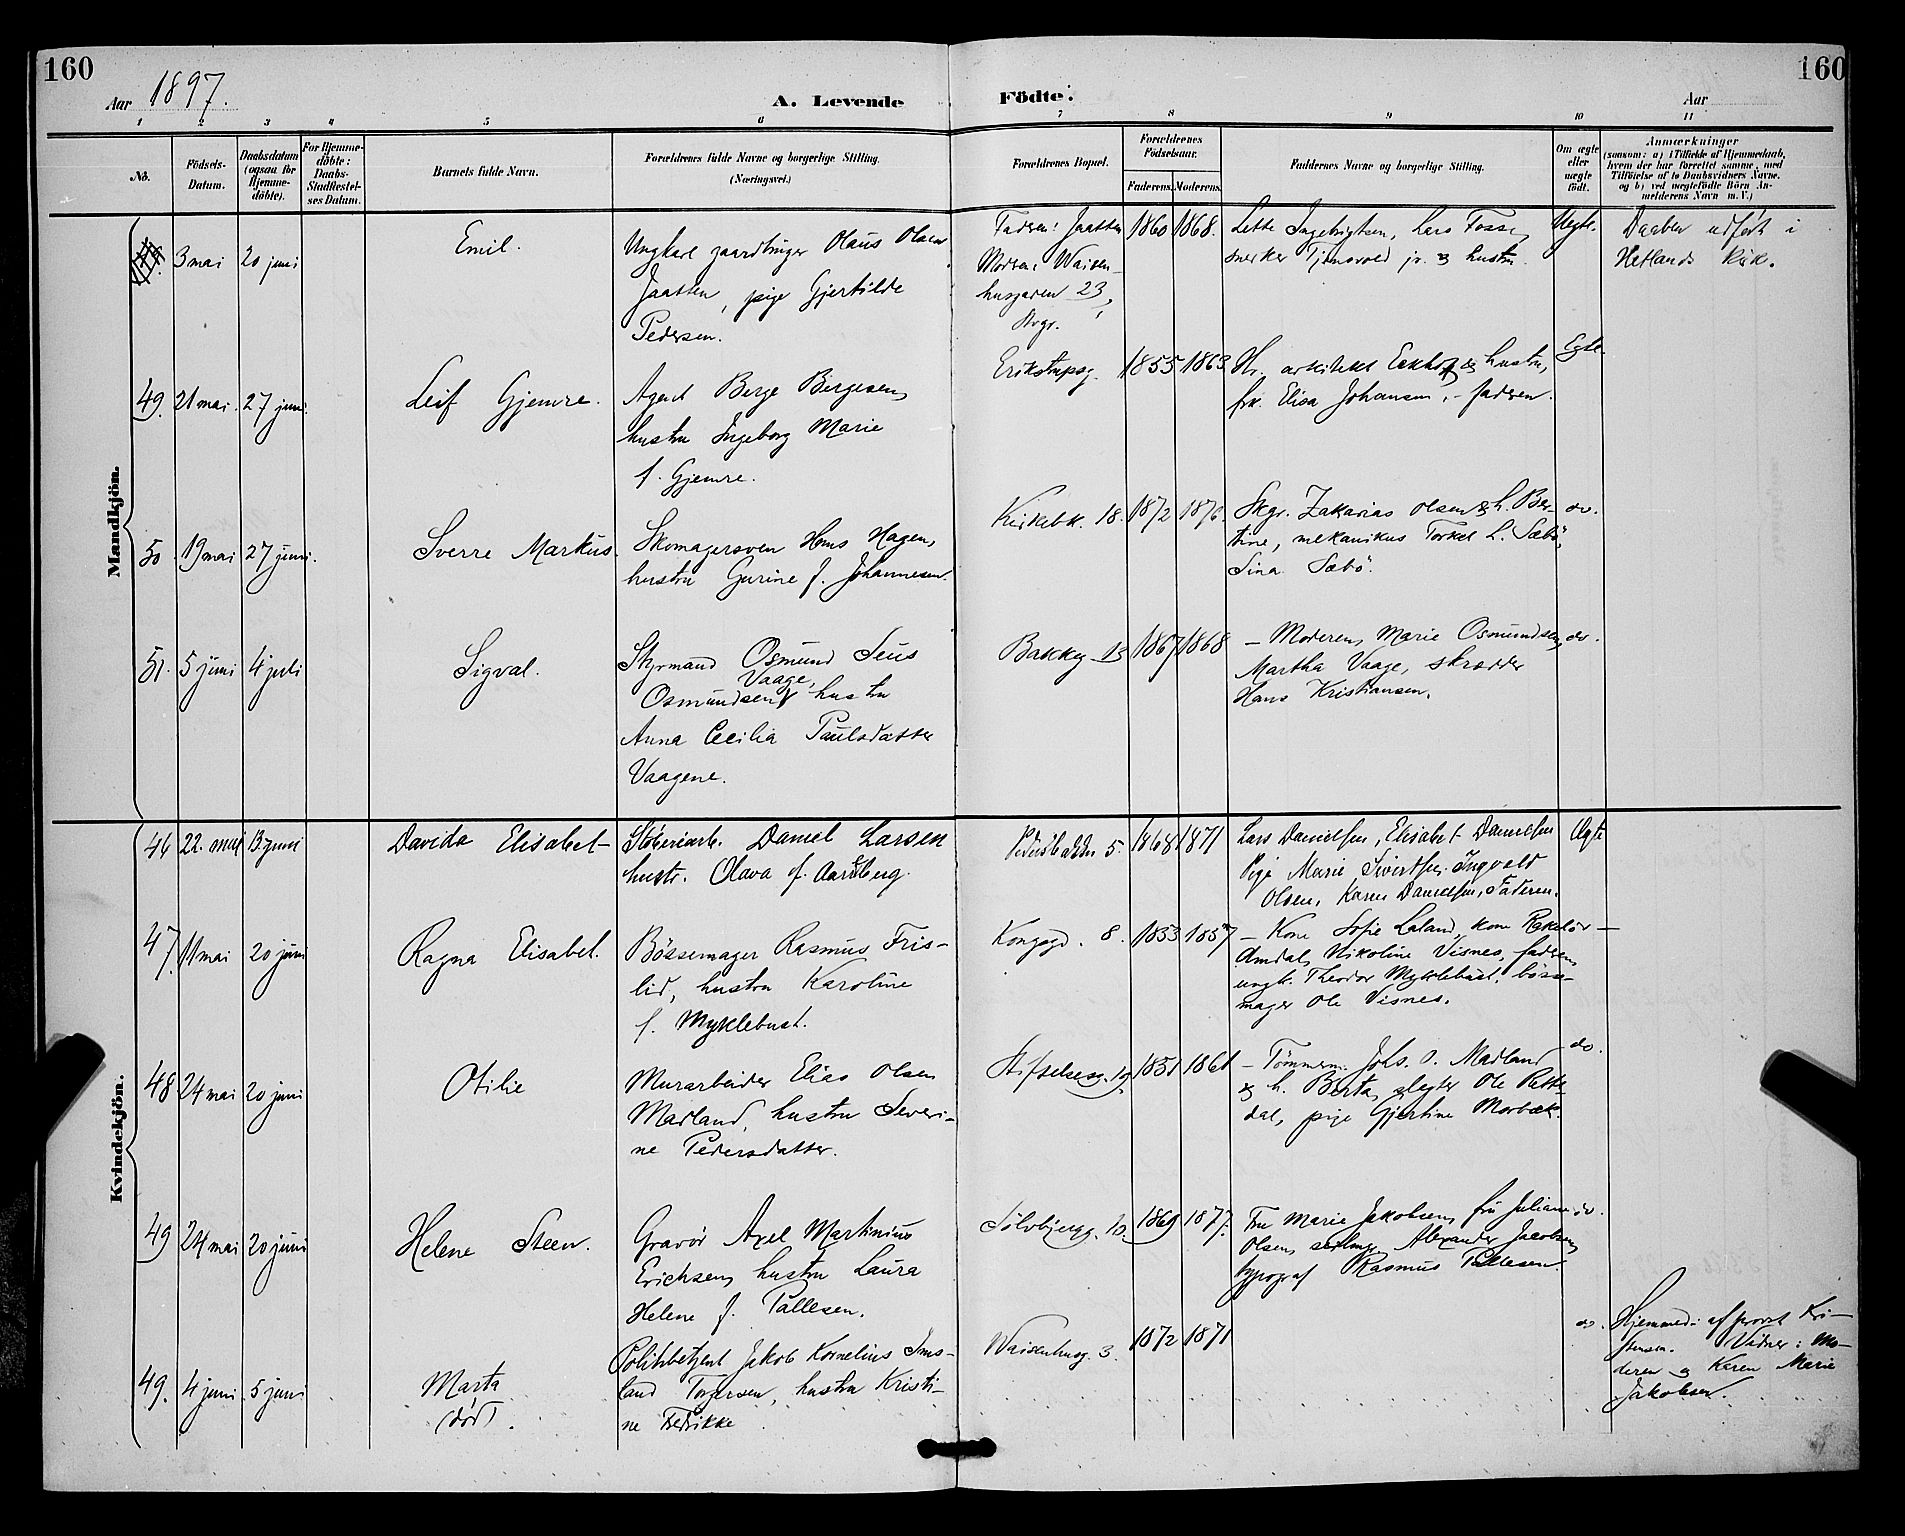 160
160
Aar 1897.
A. Levende
Födte.
Aar
1 2 3 4 5 6 7 8 9 10 11
No.
Födsels-
Datum.
Daabsdatum
(ogsaa for
Hjemme-
döbte).
For Hjemme-
döbte:
Daabs-
Stadfæstel-
ses Datum.
Barnets fulde Navn.
Forældrenes fulde Navne og borgerlige Stilling.
(Næringsvei.)
Forældrenes Bopæl.
Forældrenes
Födselsaar.
Faderens. Moderens.
Faddernes Navne og borgerlige Stilling.
Om ægte
eller
uægte
födt.
Anmærkninger
(saasom: a) i Tilfælde af Hjemmedaab,
hvem der har forrettet samme, med
Tilföielse af to Daabsvidners Navne.
og b) ved uægtefödte Börn An-
melderens Navn m. V.)
Mandkjön.
3 mai 20 juni
Emil.
Ungkarl gaardbruger Olaus Olsen
Jaatten, pige Gjertilde
Pedersen.
Fadren: Jaatten
Modren: Waisen-
husgaden 23,
Stvgr.
1860 1868.
Lette Ingebrigtsen, Lars Fosse,
snerker Tjensvold jr. & hustru.
Uegte.
Daaben udført i
Hetlands kirk.
49. 21 mai. 27 juni.
Leif Gjemre.
Agent Berge Børgesen,
hustru Ingeborg Marie
f. Gjemre.
Erikstrupsg.
1855 1863
Hr. arkitekt Eckhoff & hustru,
frk. Elisa Johansen, - fadren.
Egte.
50. 19 mai 27 juni.
Sverre Markus.
Skomagersven Hans Hagen,
hustru Gurine f. Johannesen.
Kirkebk. 18.
1872 1876.
Skgr. Zakarias Olsen & h. Ber-
tine, mekanikus Torkel L. Sæbö,
Sina Sæbö.
do.
51. 5 juni 4 juli
Sigval.
Styrmand Osmund Seus
Vaage,
Osmundsen, hustru
Anna Cecilia Paulsdatter
Vaagene.
Bakkeg 13
1867 1868
- Moderen, Marie Osmundsen,
Martha Vaage, skrædder
Hans Kristiansen.
do.
Kvindekjön.
46 22. mai 13 juni
Davida Elisabet
Støberiarb. Daniel Larsen
hustr. Olava f. Aarsberg.
Pedersbakken 5.
1868 1871
Lars Danielsen, Elisabet Danielsen
Pige Marie Sivertsen. Ingvald
Olsen, Karen Danielsen, Faderen.
Ægte
47. 11 mai 20 juni
Ragna Elisabet.
Bössemager Rasmus Fris-
lid, hustru Karoline
f. Myklebust.
Kongsgd. 8.
1853 1857
- Kone Sofie Laland, kone Rakel
Omdal, Nikoline Visnes, fadren,
ungk. Theodor Myklebust, bösse-
mager Ole Visnes.
48 24 mai 20 juni
Otilie
Murarbeider Elias Olsen
Madland, hustru Severi-
ne Pedersdatter.
Stiftelsesg. 19.
1851 1861
- Tömmerm. Johs. O. Madland
& h. Berta, slagter Ole
dal, pige Gjertine Morbæk.
do.
49 24 mai 20 juni
Helene Steen.
Gravör Axel Martinius
Erichsen, hustru Laura
Helene f. Pallesen.
Sölvbjergg. 10.
1869 1877.
Fru Marie Jakobsen, fru Juliane
Olsen, Alexander Jacobsen,
typograf Rasmus Pallesen.
do.
49. 4 juni 5 juni
Marta
(död)
Politibetjent Jakob Kornelius Ims-
land Torgersen, hustru Kristi-
ne Fredrikke
Waisenhusg. 3.
1872 1871
do.
Hjemmed. af provst Kri-
stensen. Vidner: Mo-
deren & Karen Marie
Jakobsen.